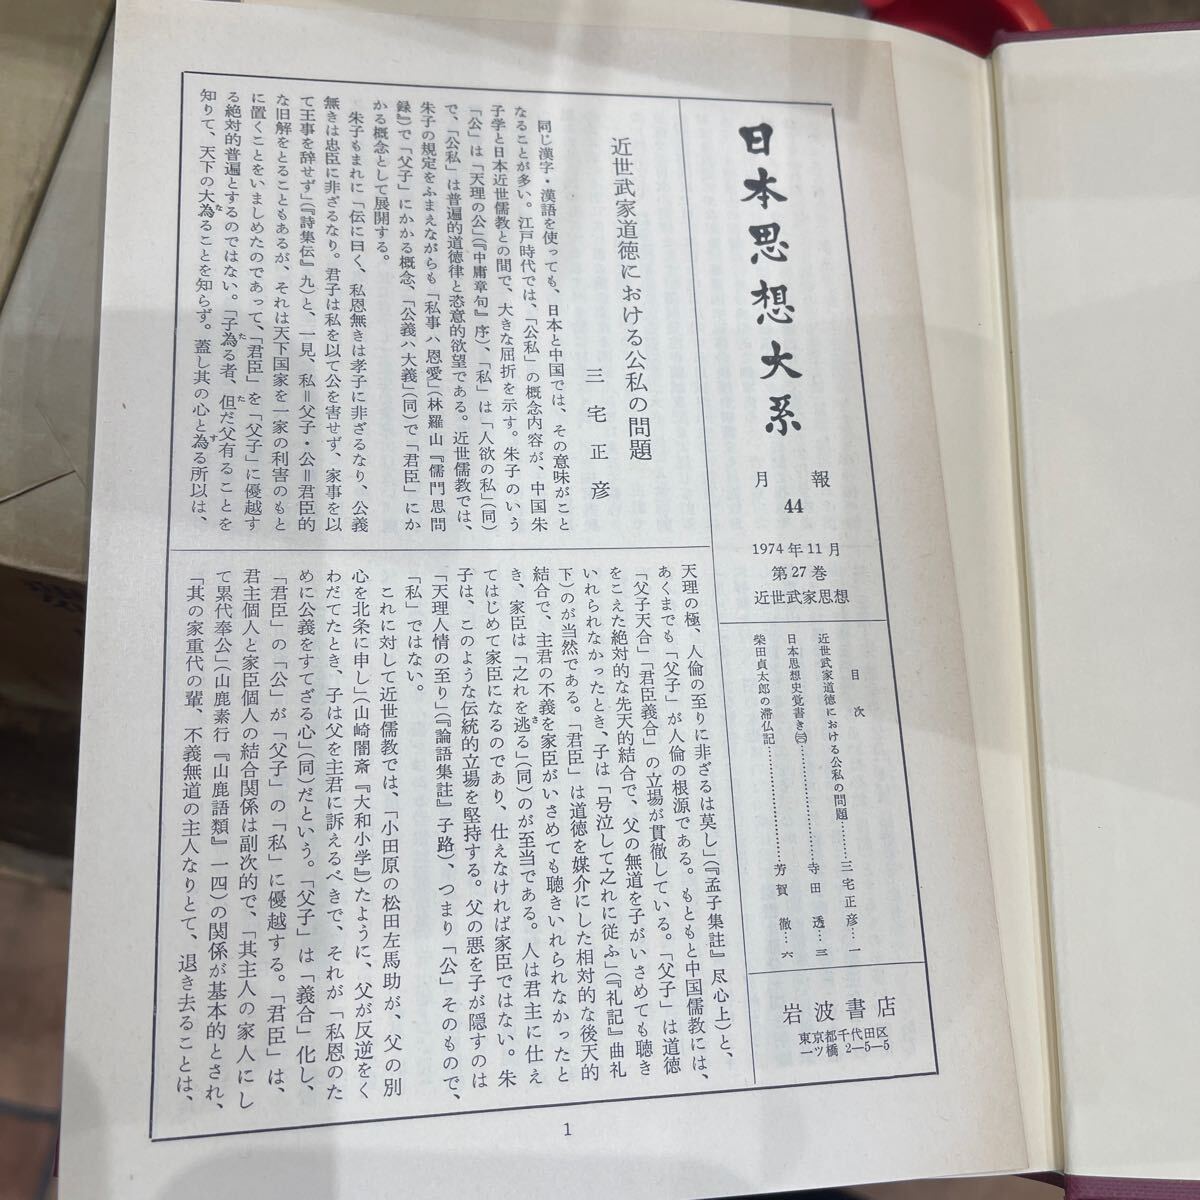 日本思想大系
月報
44
1974年11月
第27巻
近世武家思想
目次
近世武家道徳における公私の問題………三宅正彦…一
日本思想史覚書き㈢………寺田透…三
柴田貞太郎の滞仏記………芳賀徹…六
岩波書店
東京都千代田区
一ツ橋2―5―5
近世武家道徳における公私の問題
三宅正彦
同じ漢字・漢語を使っても、日本と中国では、その意味がこと
なることが多い。江戸時代では、「公私」の概念内容が、中国朱
子学と日本近世儒教との間で、大きな屈折を示す。朱子のいう
「公」は「天理の公」(『中庸章句』序)、「私」は「人欲の私」(同)
で、「公私」は普遍的道徳律と恣意的欲望である。近世儒教では、
朱子の規定をふまえながらも「私事ハ恩愛」(林羅山『儒門思問
録』)で「父子」にかかる概念、「公義ハ大義」(同)で「君臣」にか
かる概念として展開する。
朱子もまれに「伝に曰く、私恩無きは孝子に非ざるなり、公義
無きは忠臣に非ざるなり。君子は私を以て公を害せず、家事を以
て王事を辞せず」(『詩集伝』九)と、一見、私＝父子・公＝君臣的
な旧解をとることもあるが、それは天下国家を一家の利害のもと
に置くことをいましめたのであって、「君臣」を「父子」に優越す
る絶対的普遍とするのではない。「子為る者、但だ父有ることを
知りて、天下の大為ることを知らず。蓋し其の心と為る所以は、
天理の極、人倫の至りに非ざるは莫し」(『孟子集註』尽心上)と、
あくまでも「父子」が人倫の根源である。もともと中国儒教には、
「父子天合」「君臣義合」の立場が貫徹している。「父子」は道徳
をこえた絶対的な先天的結合で、父の無道を子がいさめても聴き
いれられなかったとき、子は「号泣して之れに従ふ」(『礼記』曲礼
下)のが当然である。「君臣」は道徳を媒介にした相対的な後天的
結合で、主君の不義を家臣がいさめても聴きいれられなかったと
き、家臣は「之れを逃る」(同)のが至当である。人は君主に仕え
てはじめて家臣になるのであり、仕えなければ家臣ではない。朱
子は、このような伝統的立場を堅持する。父の悪を子が隠すのは
「天理人情の至り」(『論語集註』子路)、つまり「公」そのもので、
「私」ではない。
これに対して近世儒教では、「小田原の松田左馬助が、父の別
心を北条に申し」(山崎闇斎『大和小学』)たように、父が反逆をく
わだてたとき、子は父を主君に訴えるべきで、それが「私恩のた
めに公義をすてざる心」(同)だという。「父子」は「義合」化し、
「君臣」の「公」が「父子」の「私」に優越する。「君臣」は、
君主個人と家臣個人の結合関係は副次的で、「其主人の家人にし
て累代奉公」(山鹿素行『山鹿語類』一四)の関係が基本的とされ、
「其の家重代の輩、不義無道の主人なりとて、退き去ることは、
1